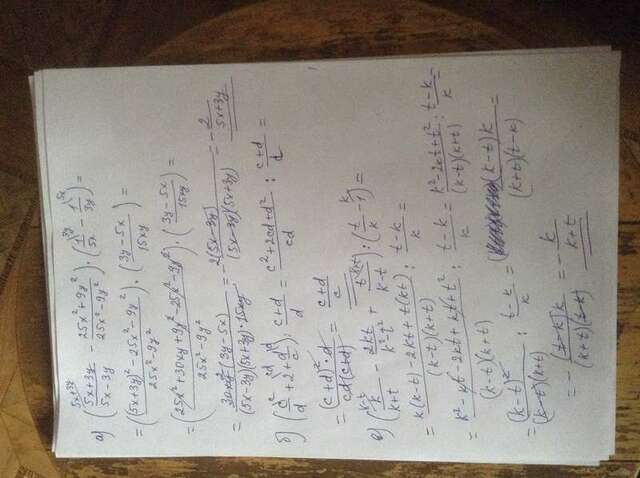 а) ( (5x+3y)/(5x-3y) - (25x²+9y²)/(25x²-9y²) ) · ( 1/5x - 1/3y ) =
= ( ((5x+3y)² - 25x² - 9y²)/(25x²-9y²) ) · ( (3y-5x)/15xy ) =
= ( (25x²+30xy+9y²-25x²-9y²)/(25x²-9y²) ) · ( (3y-5x)/15xy ) =
= 30xy(3y-5x)/((5x-3y)(5x+3y)·15xy) = -2(5x-3y)/((5x-3y)(5x+3y)) = -2/(5x+3y)
б) ( c/d + 2 + d/c ) : (c+d)/d = (c²+2cd+d²)/cd : (c+d)/d =
= (c+d)²·d/(cd(c+d)) = (c+d)/c
в) ( k/(k+t) - 2kt/(k²-t²) + t/(k-t) ) · ( t/k - 1 ) =
= (k(k-t)-2kt+t(k+t))/((k-t)(k+t)) : (t-k)/k =
= (k²-kt-2kt+kt+t²)/((k-t)(k+t)) : (t-k)/k = (k²-2kt+t²)/((k-t)(k+t)) : (t-k)/k =
= (k-t)²/((k-t)(k+t)) : (t-k)/k = (k-t)k/((k+t)(t-k)) =
= - (t-k)k/((k+t)(t-k)) = - k/(k+t)